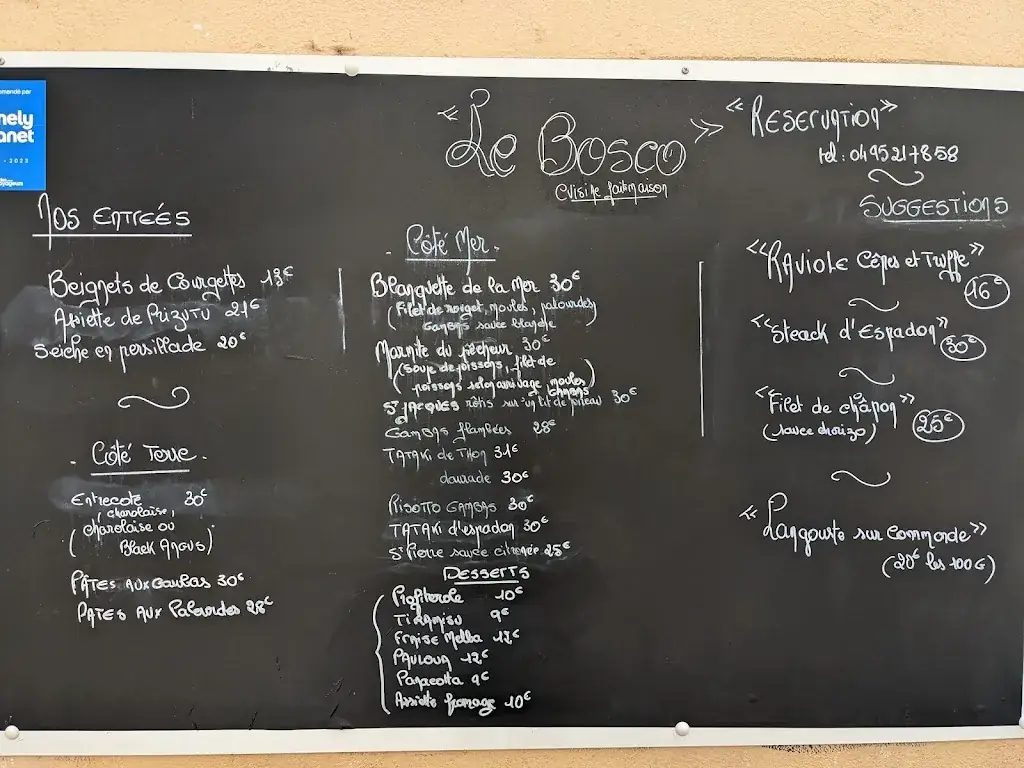 mmandé par
nely
anet
2023
yageurs
« Le Bosco »
Cuisine fait maison
« Reservation »
tel : 04 95 21 78 58
Suggestions
« Raviole Cêpes et Truffe »
16€
« Steack d'Espadon »
30€
« Filet de chapon »
(sauce chorizo)
25€
« Langouste sur Commande »
(20€ les 100€)
Nos Entrées
Beignets de Courgettes 13€
Assiette de Prizutu 21€
Seiche en persillade 20€
. Côté Terre .
Entrecote 30€
(charolaise,
(charolaise ou
Black Angus)
Pâtes aux Gambas 30€
Pates aux Palourdes 28€
. Côté Mer .
Blanquette de la Mer 30€
(Filet de rouget, moules, palourdes)
Gambas sauce blanche
Marmite du pêcheur 30€
(Soupe de poissons, filet de
poissons selon arrivage moules)
gambas
St Jacques rôtis sur un lit de 30€
Gambas flambées 28€
Tataki de Thon 31€
daurade 30€
Risotto Gambas 30€
Tataki d'espadon 30€
St Pierre sauce citronée 25€
Desserts
Profiterole 10€
Tiramisu 9€
Fraise Melba 12€
Pavlova 12€
Panacotta 9€
Assiette fromage 10€